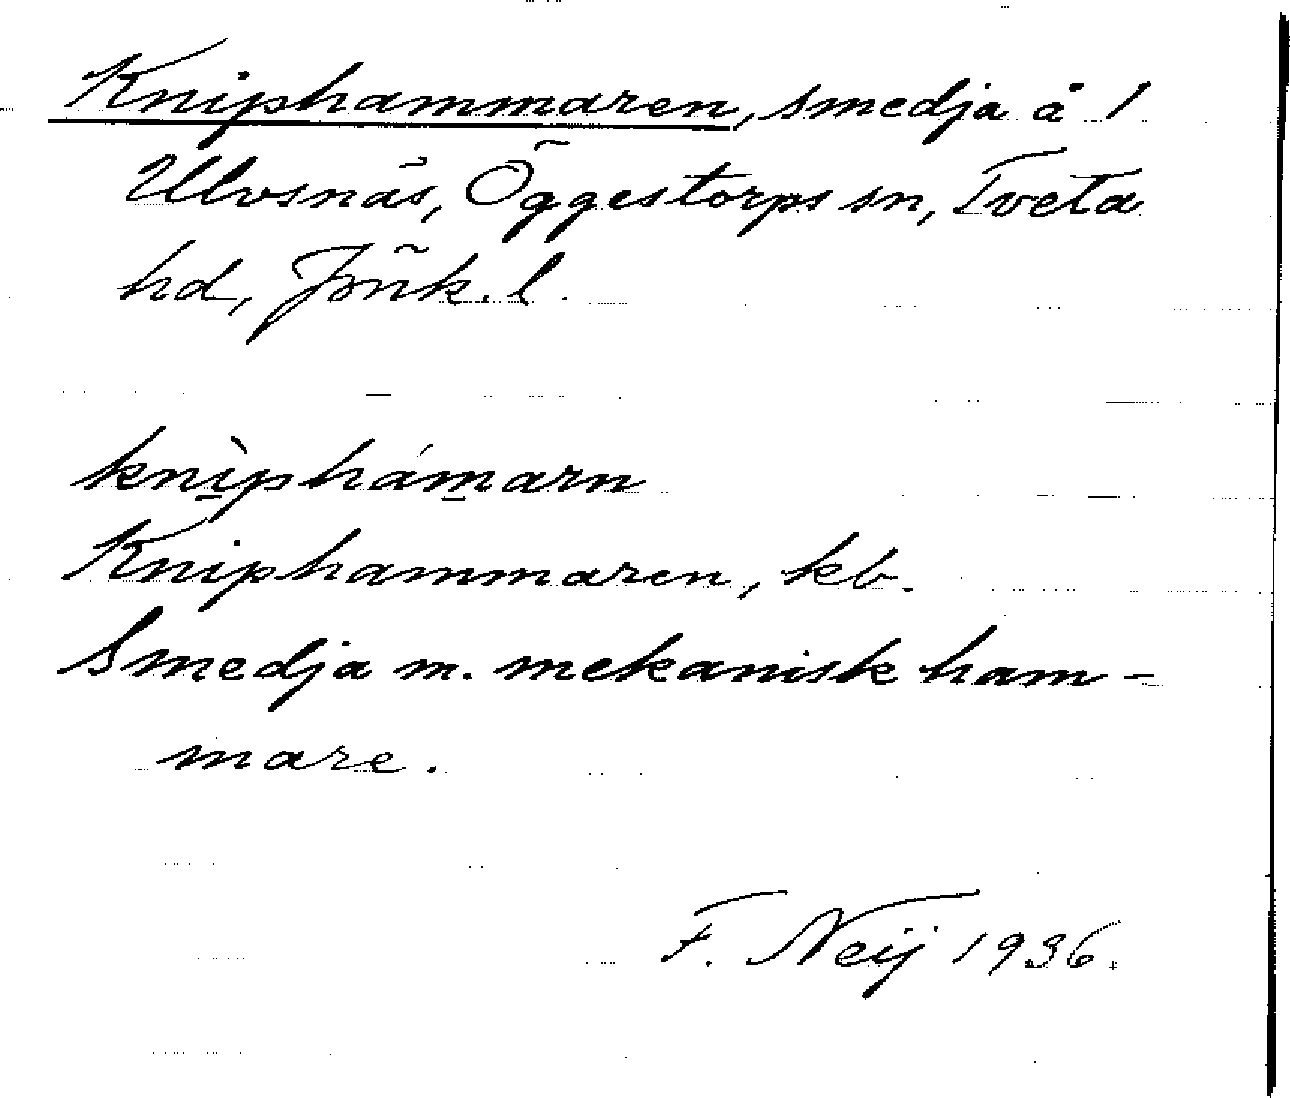 Kniphammaren, smedja å 1
Ulvsnäs, Öggestorps sn, Tveta
hd, Jönk. l.
knìphámarn
Kniphammaren, kb.
Smedja m. mekanisk ham-
mare.
F. Neij 1936.